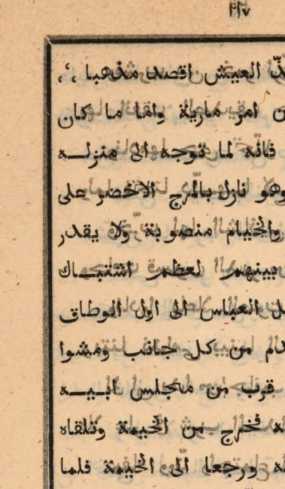 ٢١٧
العيش اقصد مذهبا
امر مارية واما ما كان
فانه لما توجه الى منزله
وهو نازل بالمرج الاخضر على
والخيام منصوبة ولا يقدر
بينهم لعظم اشتباك
العباس الى اول الوطاق
من كل جانب ومشوا
قرب من مجلس ابيه
فخرج من الخيمة وتلقاه
ورجعا الى الخيمة فلما